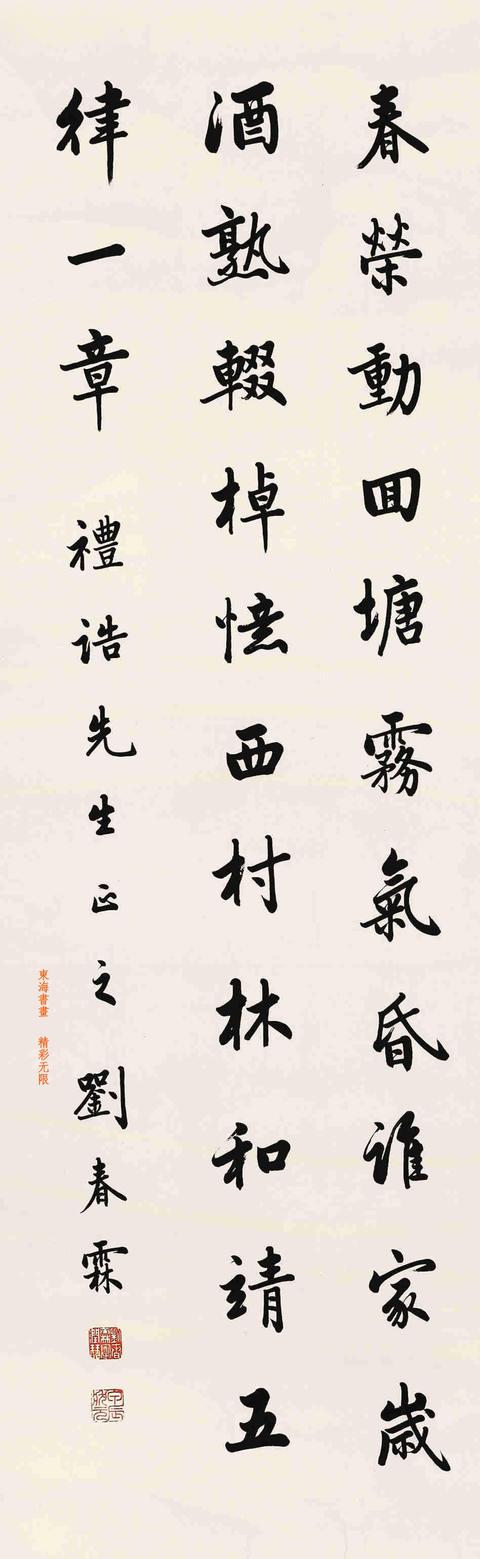 春榮動回塘霧氣昏誰家歲
酒熟輟棹憶西村林和靖五
律一章 禮誥先生正之劉春霖
東海書畫 精彩无限